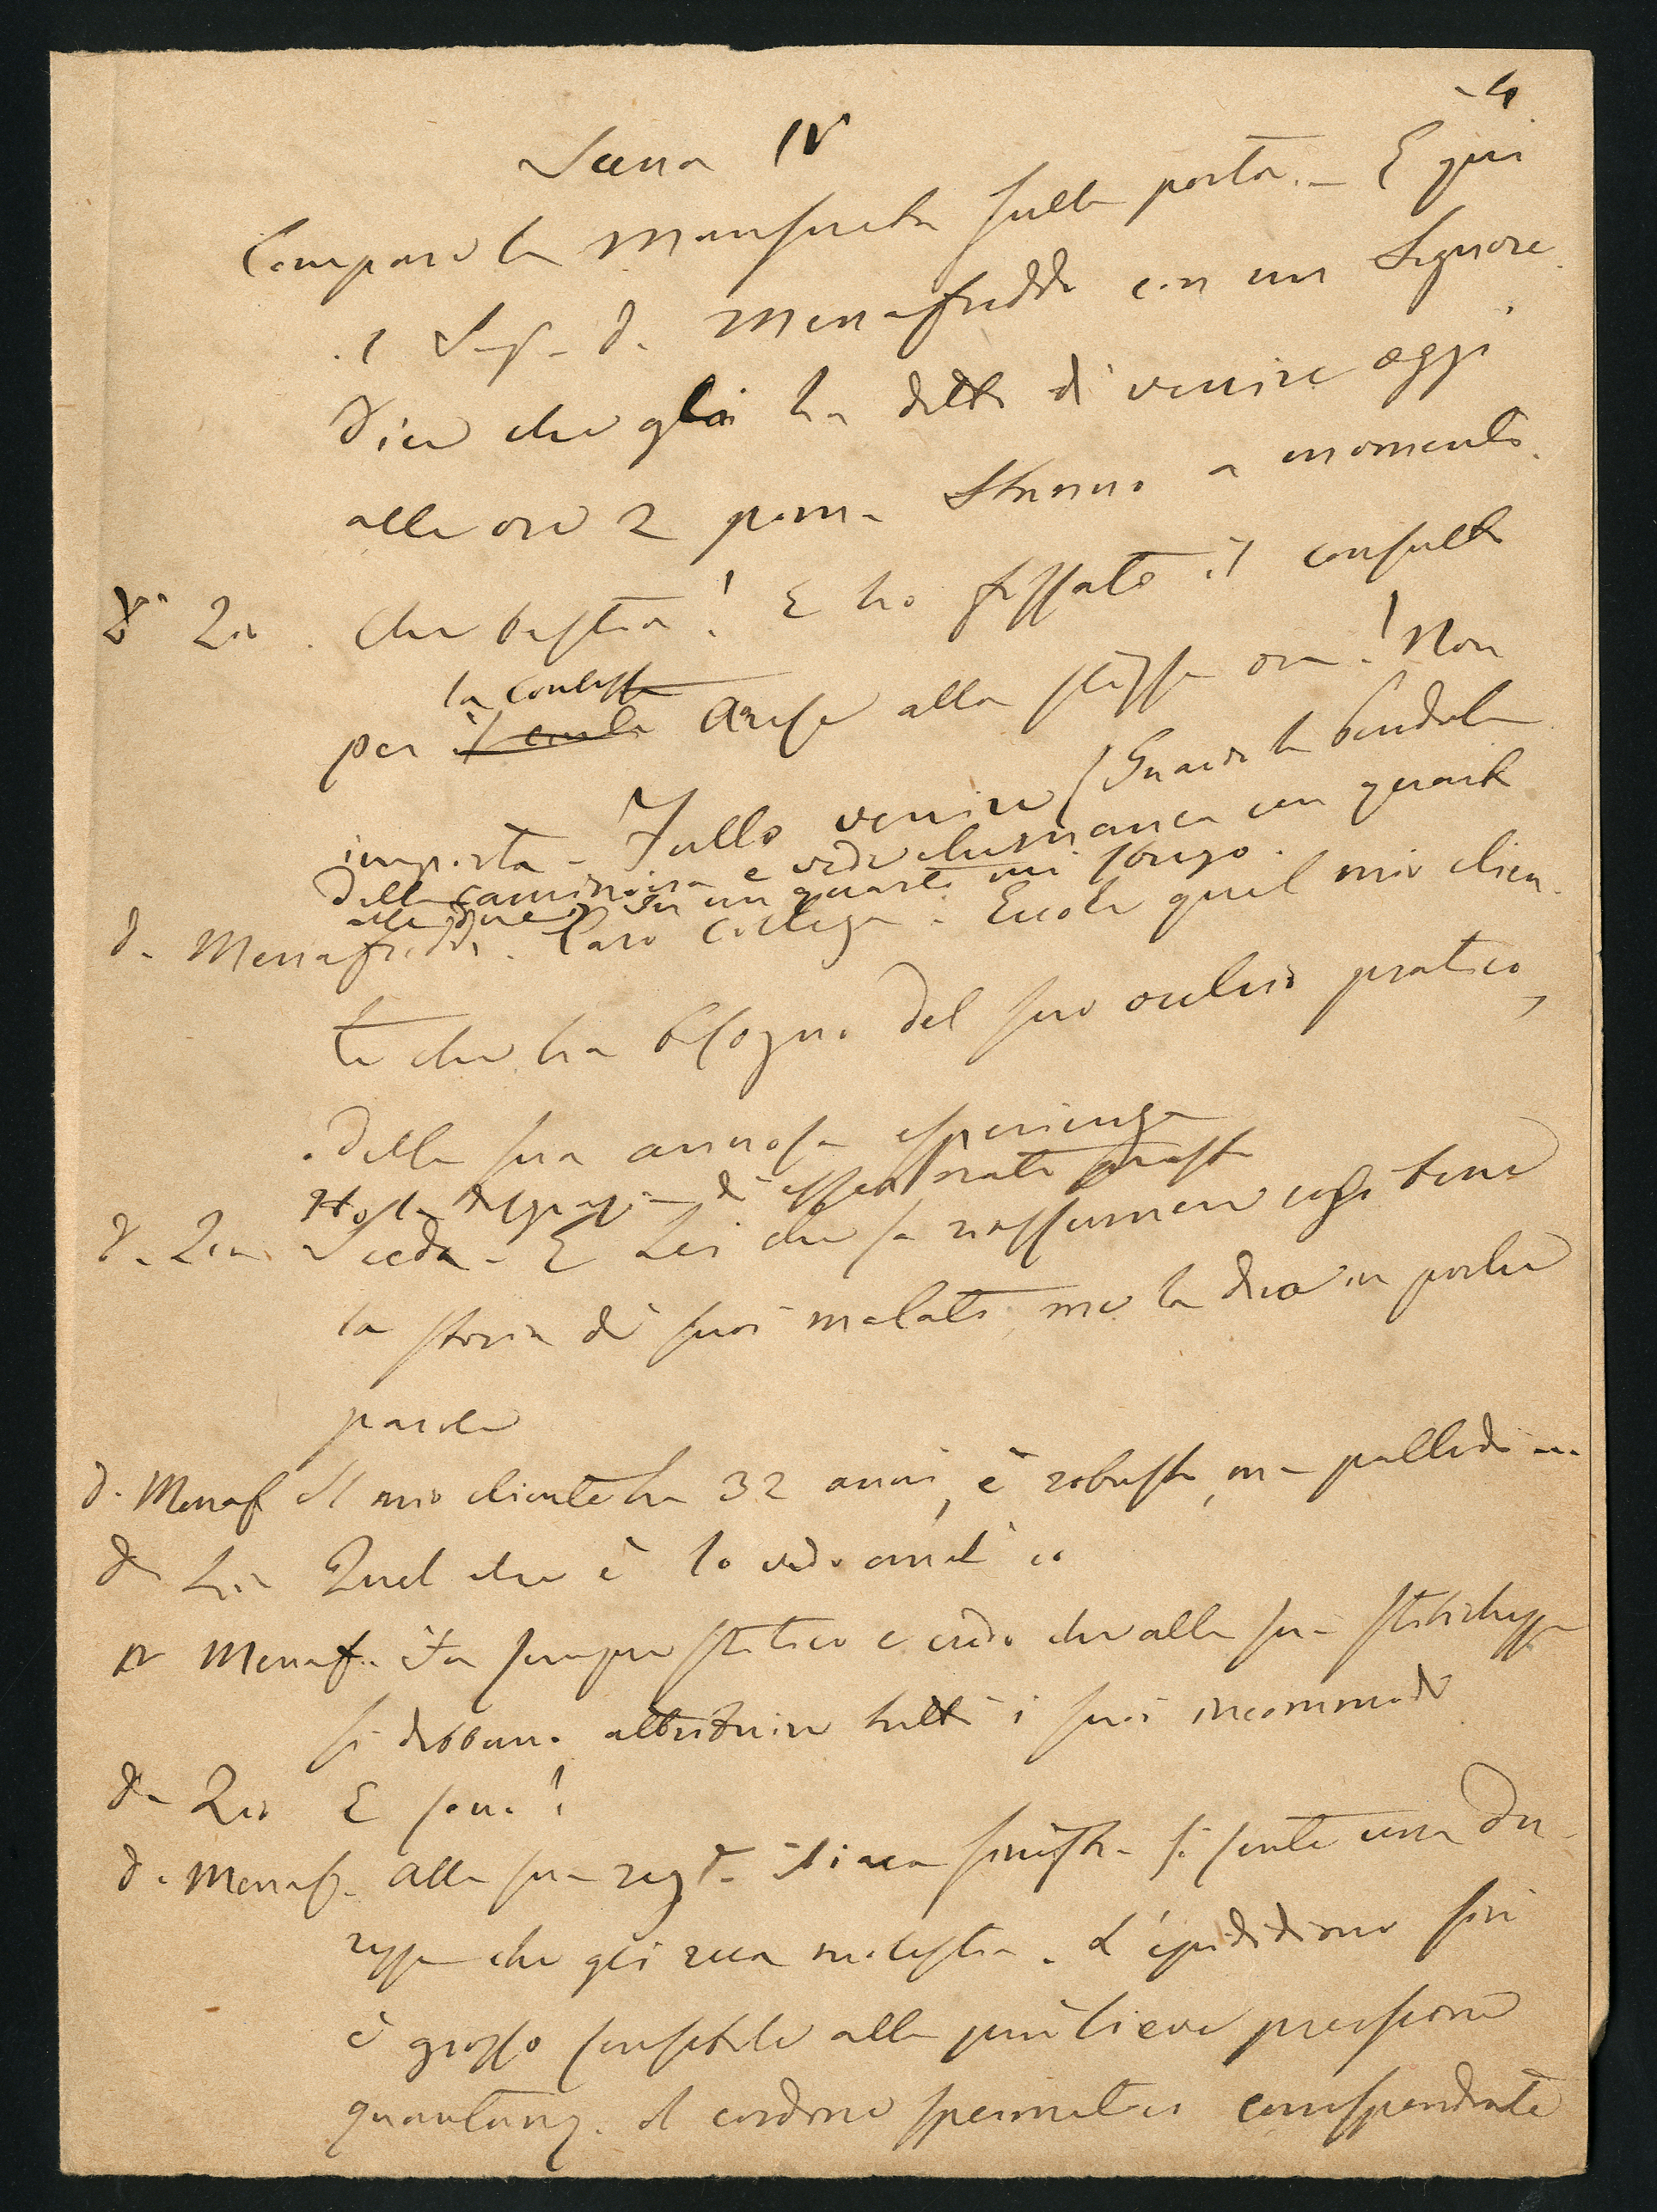 4
Scena IV
Compare la Mansueta sulla porta. – E qui
il Sig. d. Menafreddo con un Signore.
Dice che gli ha detto di venire oggi
alle ore 2 pom. Stanno a momento.
Che bestia! E ho fissato il consulto
la contessa
per il conte Arese alla stessa ora! Non
importa – Fallo venire (Guarda la pendola
della caminiera e vede che manca un quarto
alle due) In un quarto mi sbrigo.
d. Menafreddo. Caro collega. Eccole quel mio clien-
te che ha bisogno del suo occhio pratico,
della sua annosa esperienza
di esser nato presto
Sieda – E Lei che sa riassumere così bene
la storia di suoi malati, me la dica in poche
parole
d. Menaf. Il mio cliente ha 32 anni, è robusto, ma pallido
Quel che è lo vedo anch'io
Menaf. Fu sempre stitico e credo che alla sua stitichezza
si debbano attribuire tutti i suoi incommodi
E sono?
d. Menaf. Alla sua reg. iliaca sinistra si sente una du-
rezza che gli reca molestia. L'epididimo sin
è grosso sensibile alla più lieve pressione
quantunq. il cordone spermatico corrispondente